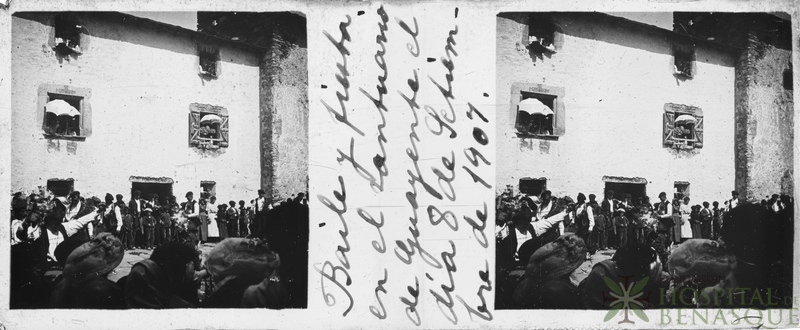 Baile y fiesta.
en el santuario
de Guayente el
día 8 de Setiem-
bre de 1907.
HOSPITAL DE
BENASQUE